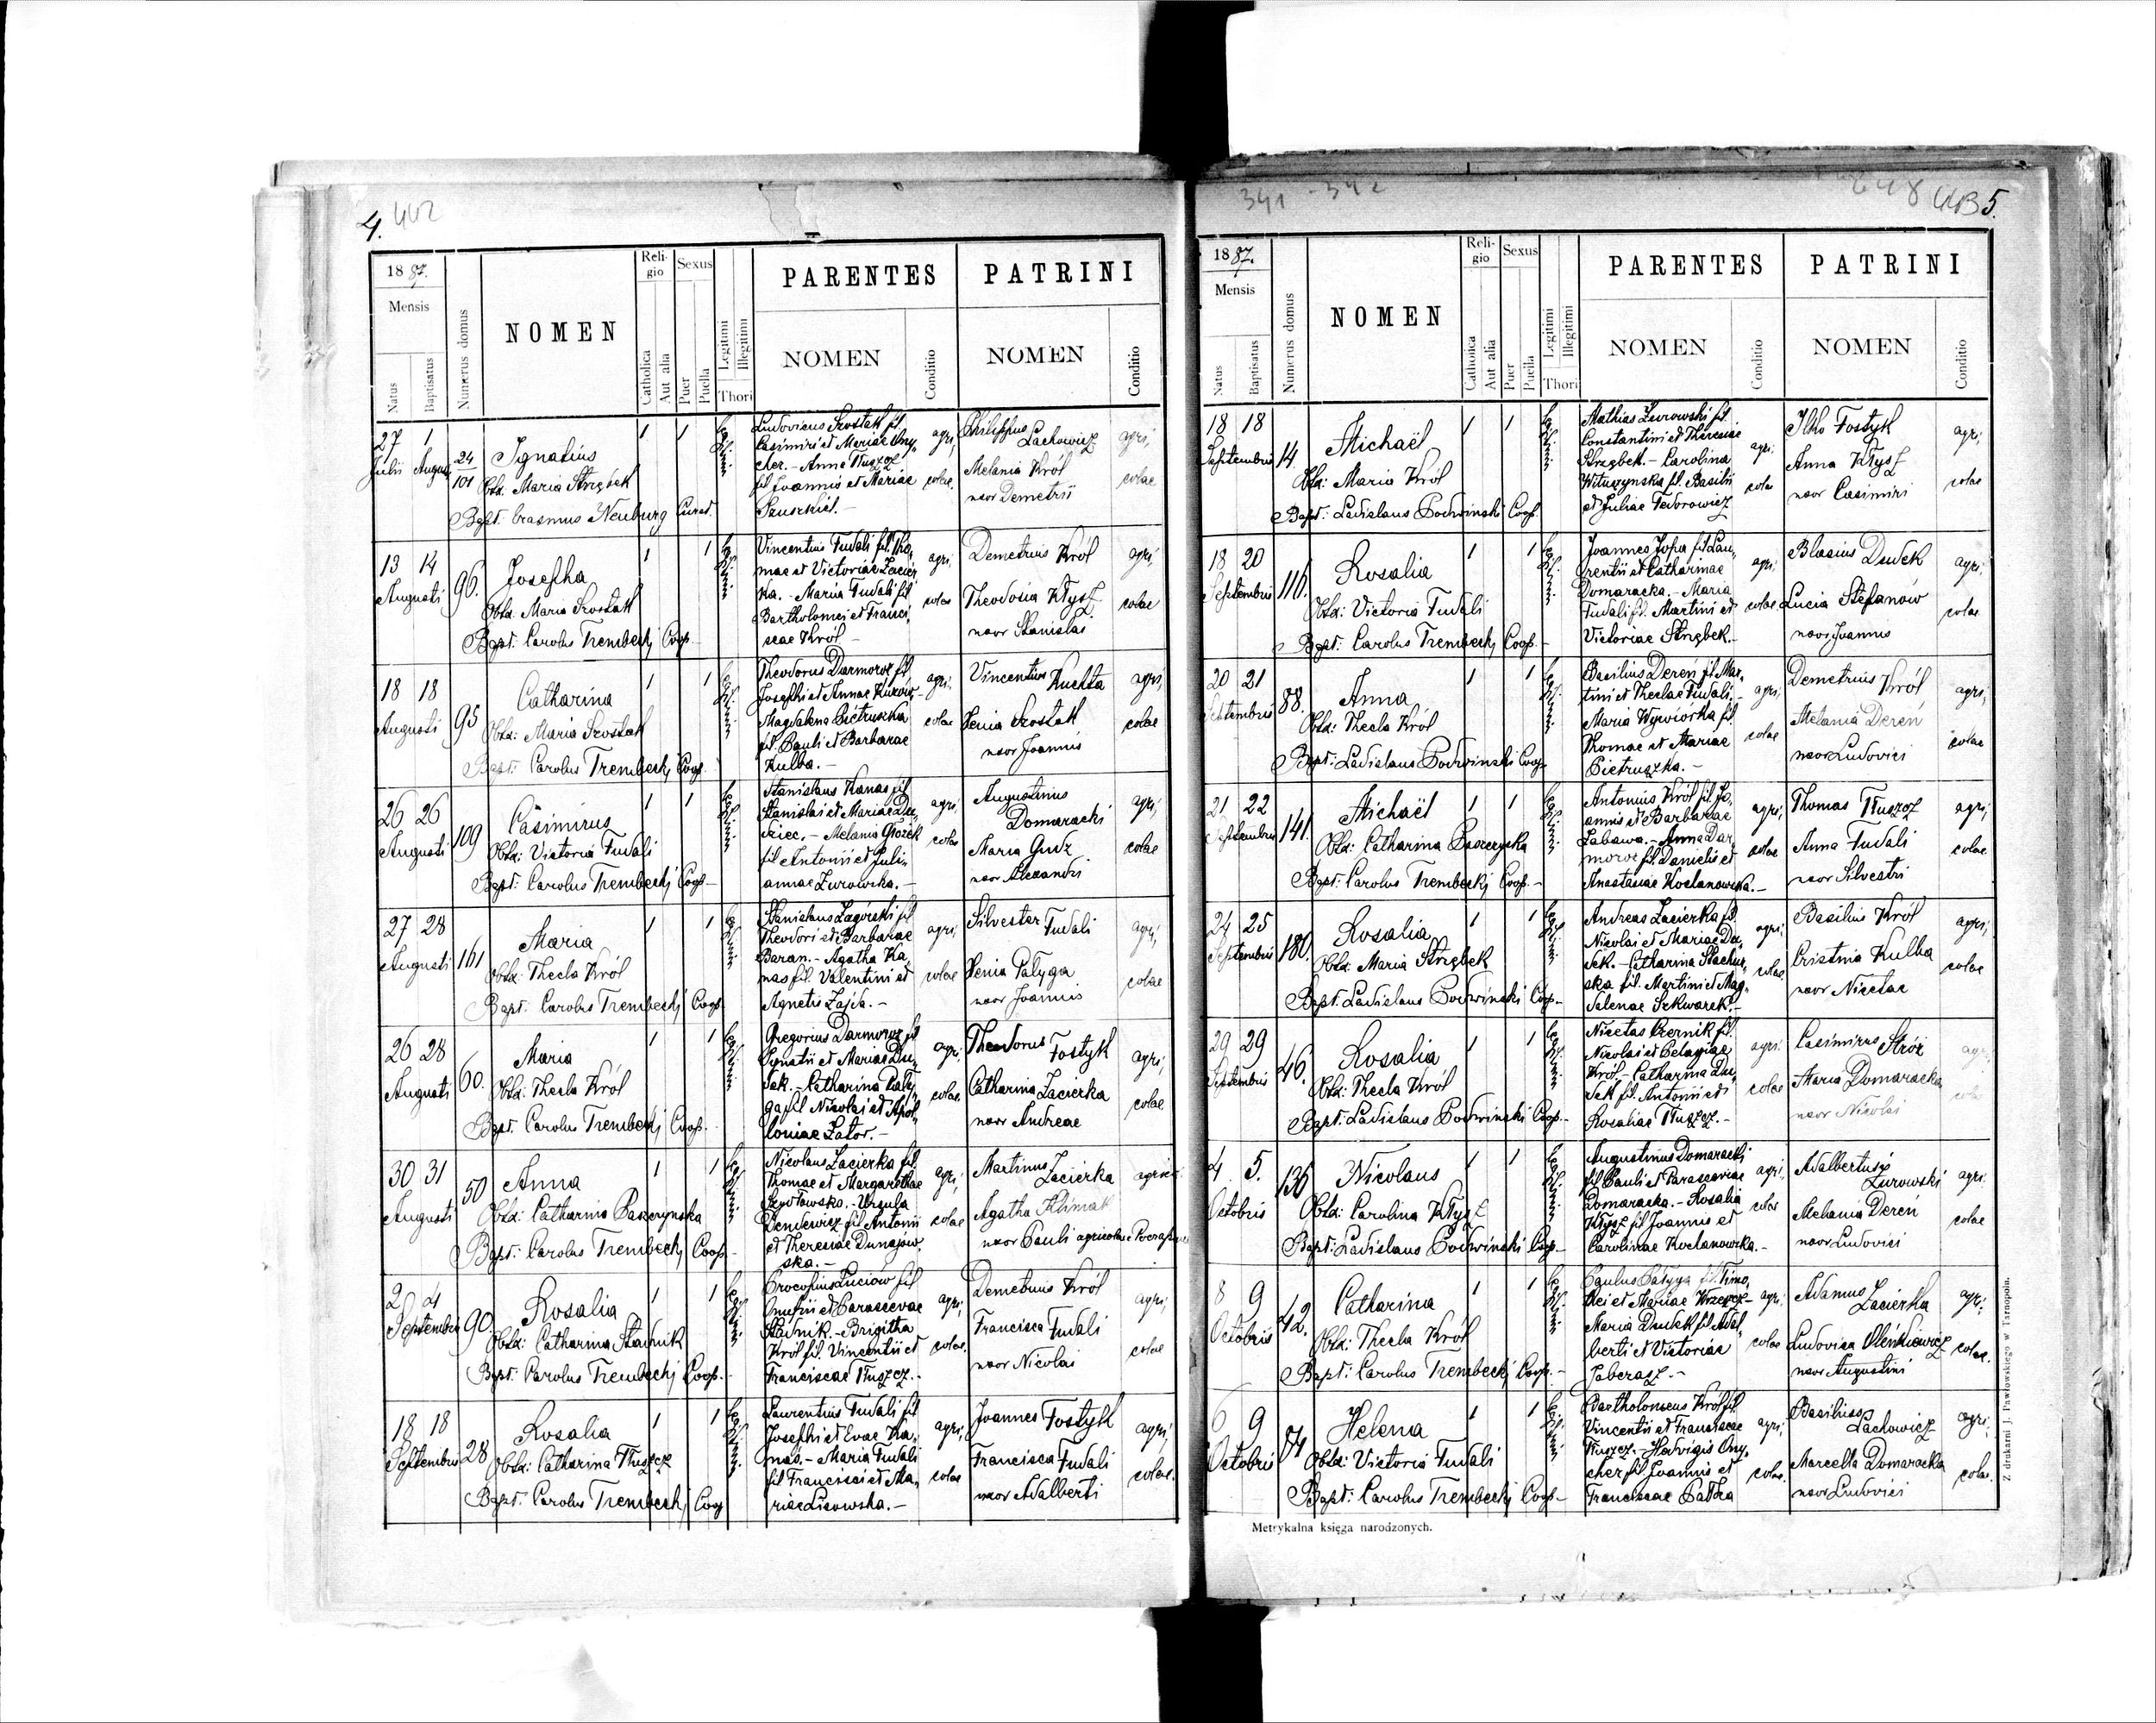 4. 402
1887.
Mensis
Natus
Baptisatus
Numerus domus
NOMEN
Religio
Catholica
Aut alia
Sexus
Puer
Puella
Legitimi
Illegitimi
Thori
PARENTES
NOMEN
Conditio
PATRINI
NOMEN
Conditio
27 1
Julii Augusti
24
101
Ignatius
Obst. Maria Strzębek
Bapt. Erasmus Neuburg Curat.
1 1
Ludovicus Szostak fil.
Casimiri et Mariae Ony-
cher. - Anna Tłuszcz
fil. Joannis et Mariae
agri,
colae.
Philippus
Lachowicz
Melania Król
uxor Demetrii
agri,
colae
13 14
Augusti
96.
Josepha
Obst. Maria Szostak
Bapt. Carolus Trembecki Coop.
1 1
Vincentius Tudali fil. Tho-
mae et Victoriae Zacier
ka. - Maria Tudali fil.
Bartholomei et Franci-
scae Król -
agri,
colae
Demetrius Król
Theodosia Kłysz
uxor Stanislai
agri,
colae
18 18
Augusti
95
Catharina
Obst: Maria Szostak
Bapt: Carolus Trembecki Coop.
1 1
Theodorus Darmoroz fil.
Josephi et Annae
Magdalena Pietruszka
fil. Pauli et Barbarae
Kulba. -
agri,
colae
Vincentius Kuchta
Xenia Szostak
uxor Joannis
agri,
colae
26 26
Augusti
109
Casimirus
Obst: Victoria Tudali
Bapt: Carolus Trembecki Coop. -
1 1
Stanislaus Kanas fil.
Stanislai et Mariae Du-
dziec. - Melania
fil. Antonii et Juli-
annae Żurowska. -
agri,
colae
Augustinus
Domaracki
Maria Gudz
uxor Alexandri
agri,
colae
27 28
Augusti
161
Maria
Obst: Thecla Król
Bapt: Carolus Trembecki Coop.
1 1
Stanislaus Zagórski fil.
Theodori et Barbarae
Baran. - Agatha Ka-
nas fil. Valentini et
Agnetis Zajda. -
agri,
colae
Silvester Tudali
Xenia Pałyga
uxor Joannis
agri,
colae
26 28
Augusti
60.
Maria
Obst: Thecla Król
Bapt. Carolus Trembecki Coop.
1 1
Gregorius Darmoroz fil.
Ignatii et Mariae Du-
dek. - Catharina Pały-
ga fil. Nicolai et Apol-
loniae Zator. -
agri,
colae.
Theodorus Fostyk
Catharina Zacierka
uxor Andreae
agri,
colae
30 31
Augusti
50
Anna
Obst: Catharina Paszczynska
Bapt: Carolus Trembecki Coop. -
1 1
Nicolaus Zacierka fil.
Thomae et Margarethae
Szydłowska. - Ursula
fil. Antonii
et Theresiae Dunajow-
ska. -
agri,
colae
Martinus
Zacierka
Agatha Klimak
uxor Pauli agricolae
2 4
Septembris
90
Rosalia
Obst: Catharina Stadnik
Bapt: Carolus Trembecki Coop. -
1 1
Procopius Luciów fil.
Onufrii et Parascevae
Stadnik. - Brigitha
Król fil. Vincentii et
Franciscae Tłuszcz. -
agri,
colae.
Demetrius Król
Francisca Tudali
uxor Nicolai
agri,
colae
18 18
Septembris
28
Rosalia
Obst: Catharina Tłuszcz
Bapt. Carolus Trembecki Coop
1 1
Laurentius Tudali fil.
Josephi et Evae Ka-
nas. - Maria Tudali
fil. Francisci et Ma-
riae Lisowska. -
agri,
colae
Joannes Fostyk
Francisca Tudali
uxor Adalberti
agri,
colae.
341 - 342
5.
1887.
Mensis
Natus
Baptisatus
Numerus domus
NOMEN
Religio
Catholica
Aut alia
Sexus
Puer
Puella
Legitimi
Illegitimi
Thori
PARENTES
NOMEN
Conditio
PATRINI
NOMEN
Conditio
18 18
Septembris
14.
Michaël
Obst: Maria Król
Bapt: Ladislaus Podwinski Coop.
1 1
Mathias Żurowski fil.
Constantini et Theresiae
Strzębek. - Carolina
Wituszynska fil. Basilii
et Juliae Fedorowicz
agri,
colae
Ilko Fostyk
Anna Kłysz
uxor Casimiri
agri,
colae
18 20
Septembris
116.
Rosalia
Obst: Victoria Tudali
Bapt: Carolus Trembecki Coop. -
1 1
Joannes Jopa fil. Lau-
rentii et Catharinae
Domaracka. - Maria
Tudali fil. Martini et
Victoriae Strzębek. -
agri,
colae
Blasius Dudek
Lucia Stefanów
uxor Joannis
agri,
colae
20 21
Septembris
88.
Anna
Obst: Thecla Król
Bapt: Ladislaus Podwinski Coop.
1 1
Basilius Dereń fil. Mar-
tini et Theclae Tudali. -
Maria Wywiórka fil.
Thomae et Mariae
Pietruszka. -
agri,
colae
Demetrius Król
Melania Dereń
uxor Ludovici
agri,
colae
21 22
Septembris
141.
Michaël
Obst: Catharina Paszczynska
Bapt: Carolus Trembecki Coop. -
1 1
Antonius Król fil. Jo-
annis et Barbarae
Zabawa. - Anna Dar-
moroz fil. Danielis et
Anastasiae Kochanowska. -
agri,
colae
Thomas Tłuszcz
Anna Tudali
uxor Silvestri
agri,
colae
24 25
Septembris
180.
Rosalia
Obst: Maria Strzębek
Bapt. Ladislaus Podwinski Coop. -
1 1
Andreas Zacierka fil.
Nicolai et Mariae Du-
dek. - Catharina Stachur-
ska fil. Martini et Mag-
dalenae Szkwarek. -
agri,
colae
Basilius Król
Cristina Kulba
uxor Nicetae
agri,
colae
29 29
Septembris
46.
Rosalia
Obst: Thecla Król
Bapt. Ladislaus Podwinski Coop. -
1 1
Nicetas Czernik fil.
Nicolai et Pelagiae
Król - Catharina Du-
dek fil. Antonii et
Rosaliae Tłuszcz. -
agri.
colae
Casimirus Stróż
Maria Domaracka
uxor Nicolai
agri,
colae
4. 5.
Octobris
136
Nicolaus
Obst: Carolina Kłysz
Bapt: Ladislaus Podwinski Coop. -
1 1
Augustinus Domaracki
fil. Pauli et Parasceviae
Domaracka. - Rosalia
Kłysz fil. Joannis et
Carolinae Kochanowska. -
agri,
colae
Adalbertus
Żurowski
Melania Dereń
uxor Ludovici
agri.
colae
8 9
Octobris
42.
Catharina
Obst: Thecla Król
Bapt: Carolus Trembecki Coop. -
1 1
Paulus Pałyga fil. Timo-
thei et Mariae
Maria Dudek fil. Adal-
berti et Victoriae
Jaberasz. -
agri,
colae
Adamus
Zacierka
Ludovica Oleńkiewicz
uxor Augustini
agri,
colae.
6 9
Octobris
Helena
Obst: Victoria Tudali
Bapt: Carolus Trembecki Coop. -
1 1
Bartholomeus Król fil.
Vincentii et Franciscae
Tłuszcz. - Hedvigis Ony-
cher fil. Joannis et
Franciscae
agri,
colae.
Basilius
Lachowicz
Marcella Domaracka
uxor Ludovici
agri,
colae.
Metrykalna księga narodzonych.
Z drukarni J. Pawłowskiego w Tarnopolu.